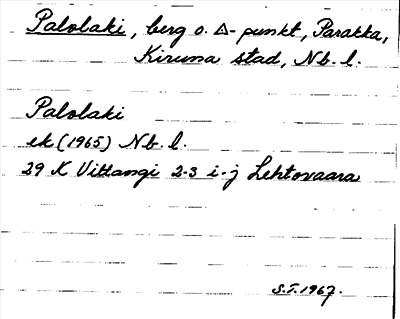 Palolaki, berg o. ∆-punkt, Parakka,
Kiruna stad, Nb. l.
Palolaki
ek (1965) Nb. l.
29 K Vittangi 2-3 i-j Lehtovaara
S.T. 1967.